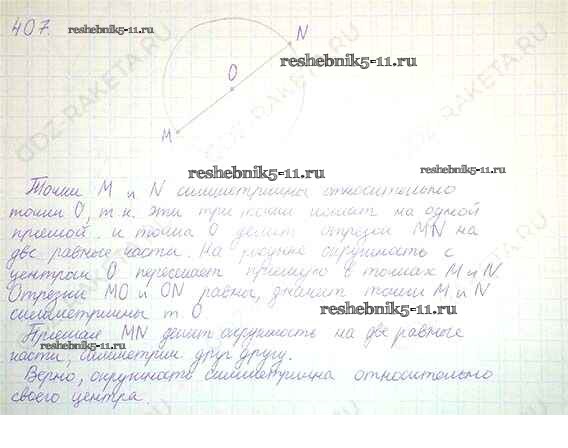 407.
reshebnik5-11.ru
N
reshebnik5-11.ru
O
M
GDZ-RAKETA.RU
reshebnik5-11.ru
reshebnik5-11.ru
Точки M и N симметричны относительно
точки O, т.к. эти три точки лежат на одной
прямой и точка O делит отрезок MN на
две равные части. На рисунке окружность с
центром O пересекает прямую в точках M и N.
Отрезки MO и ON равны, значит точки M и N
симметричны т. O
reshebnik5-11.ru
Прямая MN делит окружность на две равные
части, симметрич друг другу.
reshebnik5-11.ru
Верно, окружность симметрична относительно
своего центра.